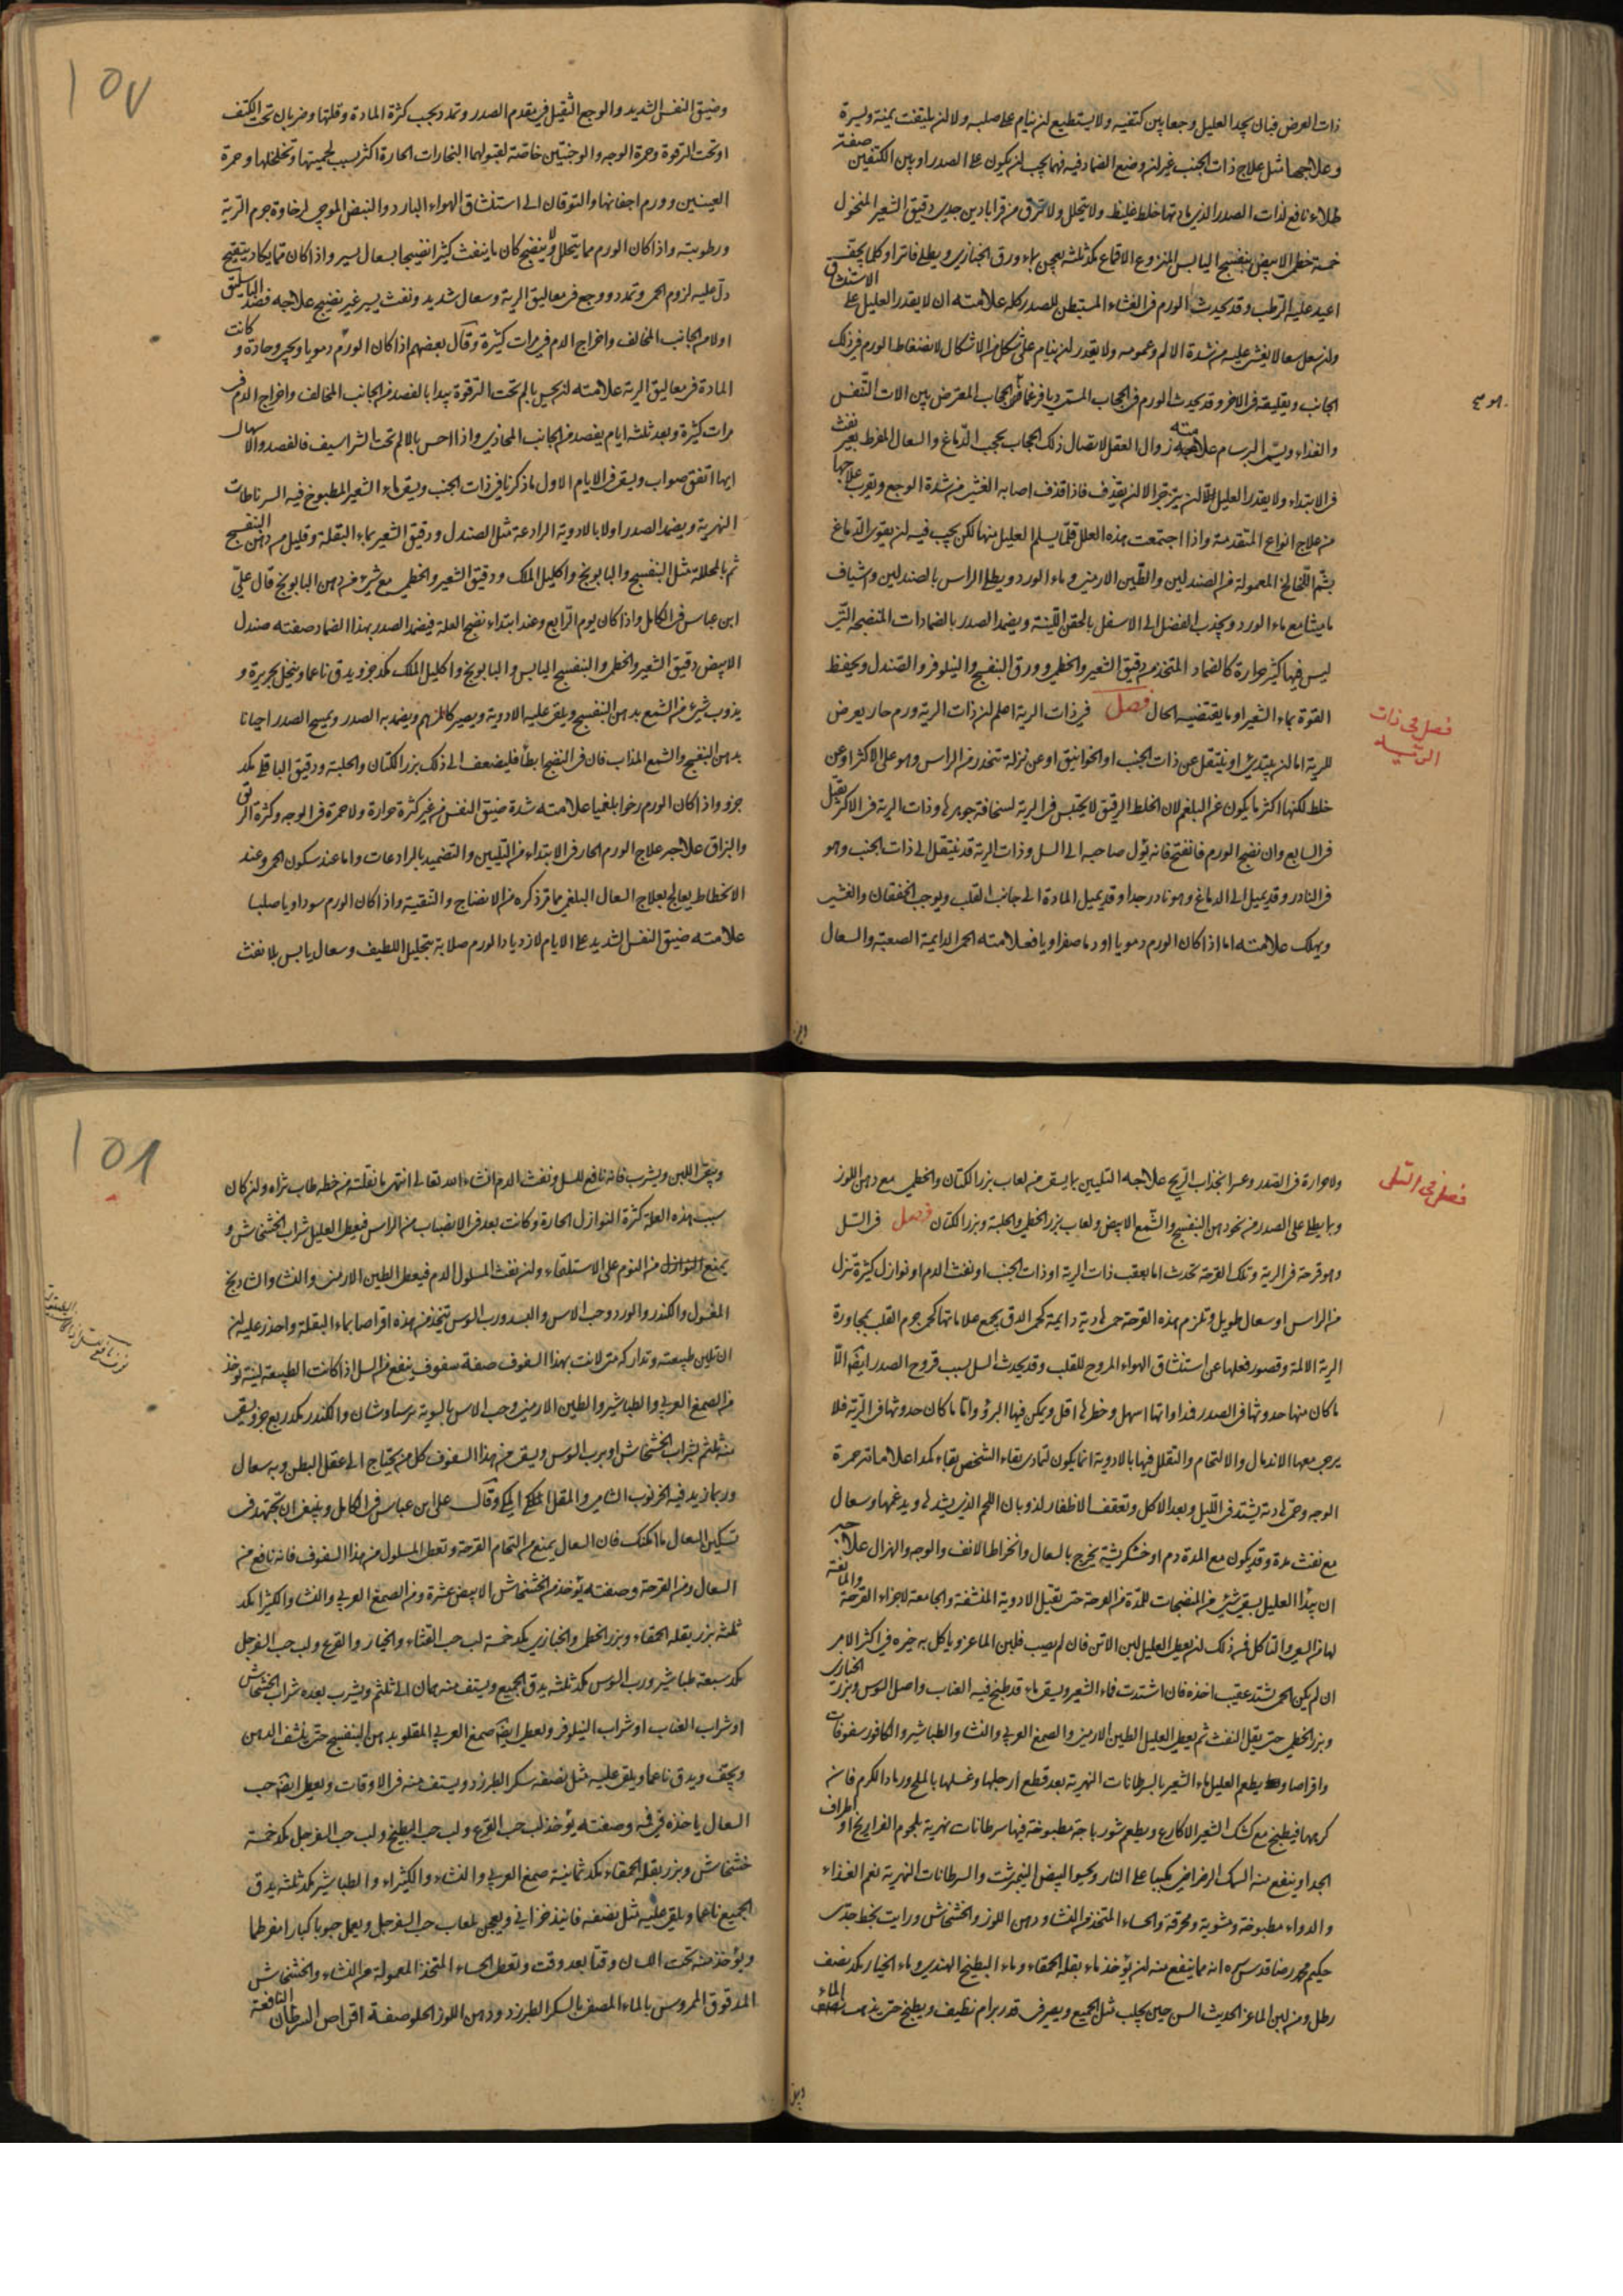 ذات العرض فبان يجد العليل وجعا بين كتفيه ولا يستطيع ان ينام على صلبه ولا ان يلتفت يمنة ويسرة
وعلاجها مثل علاج ذات الجنب غير ان وضع الضماد فيه فيما يجب ان يكون على الصدر او بين الكتفين صفة
طلاء نافع لذات الصدر الذي مادتها خلط غليظ ولا يتحلل ولا من قرابادين جدي دقيق الشعير المنخول
خمسة خطمي الابيض بنفسج اليابس المنزوع الاقماع مكد ثلثة يعجن بماء ورق الخبازي ويطلى فاترا وكلما يجف
اعيد عليه الرطب وقد يحدث الورم في الغشاء المستبطن للصدر كله علامته ان لا يقدر العليل على الاستنشاق
وان سعل سعالا يغشى عليه من شدة الالم وعمومه ولا يقدر ان ينام على شكل من الاشكال لانضغاط الورم في ذلك
الجانب وفي الاخر وقد يحدث الورم في الحجاب المسمى ديافرغما في الحجاب المعترض بين الات التنفس
والغذاء ويسمى البرسام علامته زوال العقل لاتصال ذلك الحجاب بحجب الدماغ والسعال المفرط بغير نفث
في الابتداء ولا يقدر العليل ان الا ان يقذف فاذا قذف اصابه الغشي من شدة الوجع ويقرب علاجها
من علاج انواع المتقدمة واذا اجتمعت هذه العلل قلما يسلم العليل منها لكن يجب فيه ان يقوى الدماغ
بشم اللخالخ المعمولة من الصندلين والطين الارمني وماء الورد ويطلى الراس بالصندلين وشياف
ماميثا مع ماء الورد ويجذب الفضل الى الاسفل بالحقن اللينة ويضمد الصدر بالضمادات المنضجة التي
ليس فيها كثير حرارة كالضماد المتخذ من دقيق الشعير والخطمي وورق البنفسج والنيلوفر والصندل ويحفظ
القوة بماء الشعير او ما يقتضيه الحال فصل في ذات الرية اعلم ان ذات الرية ورم حار يعرض
فصل فى ذات الريه
للرية اما ان يبتدئ او ينتقل عن ذات الجنب او الخوانيق او عن نزلة تنحدر من الراس وهو على الاكثر او عن
خلط لكنها اكثر ما يكون عن البلغم لان الخلط الرقيق لا يحتبس في الرية لسخافة جوهرها وذات الرية في الاكثر يقتل
في السابع وان نضج الورم فانفتح فانه يؤل صاحبه الى السل وذات الرية قد ينتقل الى ذات الجنب وهو
في النادر وقد يميل الى الدماغ وهو نادر جدا وقد يميل المادة الى جانب القلب ويوجب الخفقان والغشي
ويهلك علامته اما اذا كان الورم دمويا او دما صفراويا فعلامته الحمى الدايمة الصعبة والسعال
١٥٧
وضيق النفس الشديد والوجع الثقيل في مقدم الصدر وتمدد بحسب كثرة المادة وقلتها وضربان تحت الكتف
او تحت الترقوة وحمرة الوجه والوجنتين خاصة لقبولهما البخارات الحارة اكثر بسبب لحميتها وتخلخلها وحمرة
العينين وورم اجفانها والتوقان الى استنشاق الهواء البارد والنبض الموجي لرخاوة جرم الرية
ورطوبته واذا كان الورم مما يتحلل وينضج كان ما ينفث كثيرا نضيجا بسعال يسير واذا كان مما يكاد يتقيح
دل عليه لزوم الحمى وتمدد ووجع في معاليق الرية وسعال شديد ونفث يسير غير نضيج علاجه فصد الباسليق
اولا من الجانب المخالف واخراج الدم في مرات كثيرة وقال بعضهم اذا كان الورم دمويا وحادة وكانت
المادة في معاليق الرية علامته ان يحس بالم تحت الترقوة يبدا بالفصد من الجانب المخالف واخراج الدم في
مرات كثيرة وبعد ثلثة ايام يفصد من الجانب المحاذي واذا احس بالالم تحت الشراسيف فالفصد والاسهال
ايهما اتفق صواب ويسقى في الايام الاول ما ذكرنا في ذات الجنب ويسقى ماء الشعير المطبوخ فيه السرطانات
النهرية ويضمد الصدر اولا بالادوية الرادعة مثل الصندل ودقيق الشعير بماء البقلة وقليل من دهن البنفسج
ثم بالمحللة مثل البنفسج والبابونج واكليل الملك ودقيق الشعير والخطمي مع شيء من دهن البابونج قال علي
ابن عباس في الكامل واذا كان يوم الرابع وعند ابتداء نضج العلة فيضمد الصدر بهذا الضماد صفته صندل
الابيض دقيق الشعير والخطمي والبنفسج اليابس والبابونج واكليل الملك مكد جزو يدق ناعما وينخل بحريرة و
يذوب شيء من الشمع بدهن البنفسج ويلقى عليه الادوية ويصير كالمرهم ويضمد به الصدر ويمسح الصدر احيانا
بدهن البنفسج والشمع المذاب فان في النضج ابطأ فليضعف الى ذلك بزر الكتان والحلبة ودقيق الباقلى مكد
جزو واذا كان الورم رخوا بلغميا علامته شدة ضيق النفس من غير كثرة حرارة ولا حمرة في الوجه وكثرة الريق
والبزاق علاجه علاج الورم الحار في الابتداء من التليين والتضميد بالرادعات واما عند سكون الحمى وعند
الانحطاط يعالج بعلاج السعال البلغمي مما مر ذكره من الانضاج والتنقية واذا كان الورم سوداويا صلبا
علامته ضيق النفس الشديد على الايام لازدياد الورم صلابة بتحليل اللطيف وسعال يابس بلا نفث
فصل فى السل
ولا حرارة في الصدر وعسر انجذاب الريح علاجه التليين بما يسقى من لعاب بزر الكتان والخطمي مع دهن اللوز
وبما يطلى على الصدر من نحو دهن البنفسج والشمع الابيض ولعاب بزر الخطمي والحلبة وبزر الكتان فصل في السل
وهو قرحة في الرية وتلك القرحة تحدث اما بعقب ذات الرية او ذات الجنب او نفث الدم او نوازل كثيرة تنزل
من الراس او سعال طويل وتلزم بهذه القرحة حمى هادية دايمة كحمى الدق بجميع علاماتها كحمى جرم القلب بمجاورة
الرية الالمة وقصور فعلها عن استنشاق الهواء المروح للقلب وقد يحدث السل بسبب قروح الصدر ايضا الا
ما كان منها حدوثها في الصدر فمداواتها اسهل وخطرها اقل ويمكن فيها البرؤ واما ما كان حدوثها في الرية فلا
يرجى معها الاندمال والالتحام والتقلل فيها بالادوية انما يكون لتمادي بقاء الشخص بقاء كمدا علاماته حمرة
الوجه وحمى هادية يشتد في الليل وبعد الاكل وتعقف الاظفار لذوبان اللحم الذي يشدها ويدعمها وسعال
مع نفث مدة وقد يكون مع المدة دم او خشكريشة يخرج بالسعال وانخراط الانف والوجه والهزال علاجه
ان يبدا العليل بسقي شيء من المنضجات للمدة من القرحة حتى يقبل الادوية المنشفة والجامعة لاجزاء القرحة والمانعة
لها من السعي والتاكل فمن ذلك ان يعطى العليل لبن الاتن فان لم يصب فلبن الماعز وياكل به خبزه في اكثر الامر
ان لم يكن الحمى يشتد عقيب اخذه فان اشتدت فماء الشعير ويسقى ماء قد طبخ فيه العناب واصل السوس وبزر الخبازي
وبزر الخطمي حتى يقل النفث ثم يعطى العليل الطين الارمني والصمغ العربي والنشا والطباشير والكافور سفوفات
واقراصا ويطعم العليل ماء الشعير بالسرطانات النهرية بعد قطع ارجلها وغسلها بالملح ورماد الكرم فان
كرهها فيطبخ مع كشك الشعير الاكارع ويطعم شورباجة مطبوخة فيها سرطانات نهرية بلحوم الفراريج او اطراف
الجدا وينفع منه السمك الرضراضي مكببا على النار ويحسو البيض النيمرشت والسرطانات النهرية نعم الغذاء
والدواء مطبوخة ومشوية ومحرقة والحساء المتخذ من النشا ودهن اللوز والخشخاش ورايت بخط جدي
حكيم محمد رضا قدس سره انه مما ينفع منه ان يؤخذ ماء بقلة الحمقاء وماء البطيخ الهندي وماء الخيار مكد نصف
رطل ومن لبن الماعز الحديث السن حين يحلب مثل الجميع ويصير في قدر برام نظيف ويطبخ حتى يذهب الماء
١٥٨
ويبقى اللبن ويشرب فانه نافع للسل ونفث الدم انشاء الله تعالى انتهى ما نقلته من خطه طاب ثراه وان كان
سبب هذه العلة كثرة النوازل الحارة وكانت بعد في الانصباب من الراس فيعطى العليل شراب الخشخاش و
يمنع النوازل من النوم على الاستلقاء وان نفث المسلول الدم فيعطى الطين الارمني والنشا والشاذنج
المغسول والكندر والورد وحب الاس والبسد ورب السوس يتخذ من هذه اقراصا بماء البقلة واحذر عليه من
ان تلين طبيعته وتداركه متى لانت بهذا السفوف صفة سفوف ينفع من السل اذا كانت الطبيعة لينة يوخذ
من الصمغ العربي والطباشير والطين الارمني وحب الاس بالسوية برسياوشان والكندر مكد ربع جزو يسقى
منه بشراب الخشخاش او برب السوس ويسقى من هذا السفوف كل من يحتاج الى عقل البطن وبه سعال
وربما زيد فيه الخرنوب الشامي والمقل المكي وقال علي ابن عباس في الكامل وينبغي ان تجتهد في
تسكين السعال ما امكنك فان السعال يمنع من التحام القرحة وتعطى المسلول من هذا السفوف فانه نافع من
السعال ومن القرحة وصفته يؤخذ من الخشخاش الابيض عشرة ومن الصمغ العربي والنشا والكثيرا مكد
ثلثة بزر بقلة الحمقاء وبزر الخطمي والخبازي مكد خمسة لب حب القثاء والخيار والقرع ولب حب السفرجل
مكد سبعة طباشير ورب السوس مكد ثلثة يدق الجميع ويستف منه مثقالان الى ثلثة ويشرب بعده شراب الخشخاش
او شراب العناب او شراب النيلوفر ويعطى ايضا صمغ العربي المقلو بدهن البنفسج حتى ينشف الدهن
ويجفف ويدق ناعما ويلقى عليه مثل نصفه سكر الطبرزد ويستف منه في الاوقات ويعطى ايضا حب
السعال ياخذه في فيه وصفته يؤخذ لب حب القرع ولب حب البطيخ ولب حب السفرجل مكد خمسة
خشخاش وبزر بقلة الحمقاء مكد ثمانية صمغ العربي والنشاء والكثيراء والطباشير مكد ثلثة يدق
الجميع ناعما ويلقى عليه مثل نصفه فانيذ خزايني ويعجن بلعاب حب السفرجل ويعمل حبوبا كبارا مفرطحا
ويؤخذ منه تحت اللسان وقتا بعد وقت وتعطى الحساء المتخذ المعمولة من النشاء والخشخاش
المدقوق الممروس بالماء المصفى بالسكر الطبرزد ودهن اللوز الحلو صفة اقراص السرطان النافعة